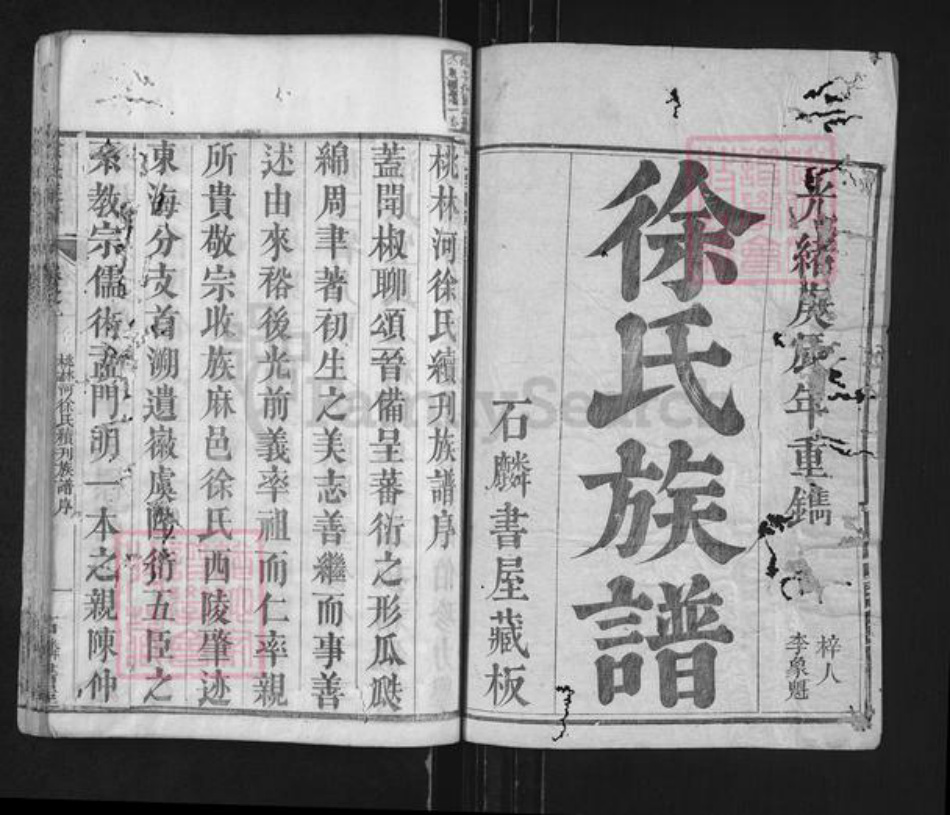 光緒庚辰年重鐫
梓人
李象魁
徐氏族譜
石麟書屋藏板
桃林河徐氏續刋族譜序
蓋聞椒聊頌晉備呈蕃衍之形瓜瓞
綿周聿著初生之美志善繼而事善
述由來裕後光前義率祖而仁率親
所貴敬宗收族麻邑徐氏西陵肇迹
東海分支首溯遺徽虞陛衍五臣之
教宗儒術孟門明一本之親陳仲
桃林河徐氏續刋族譜序
FamilySearch